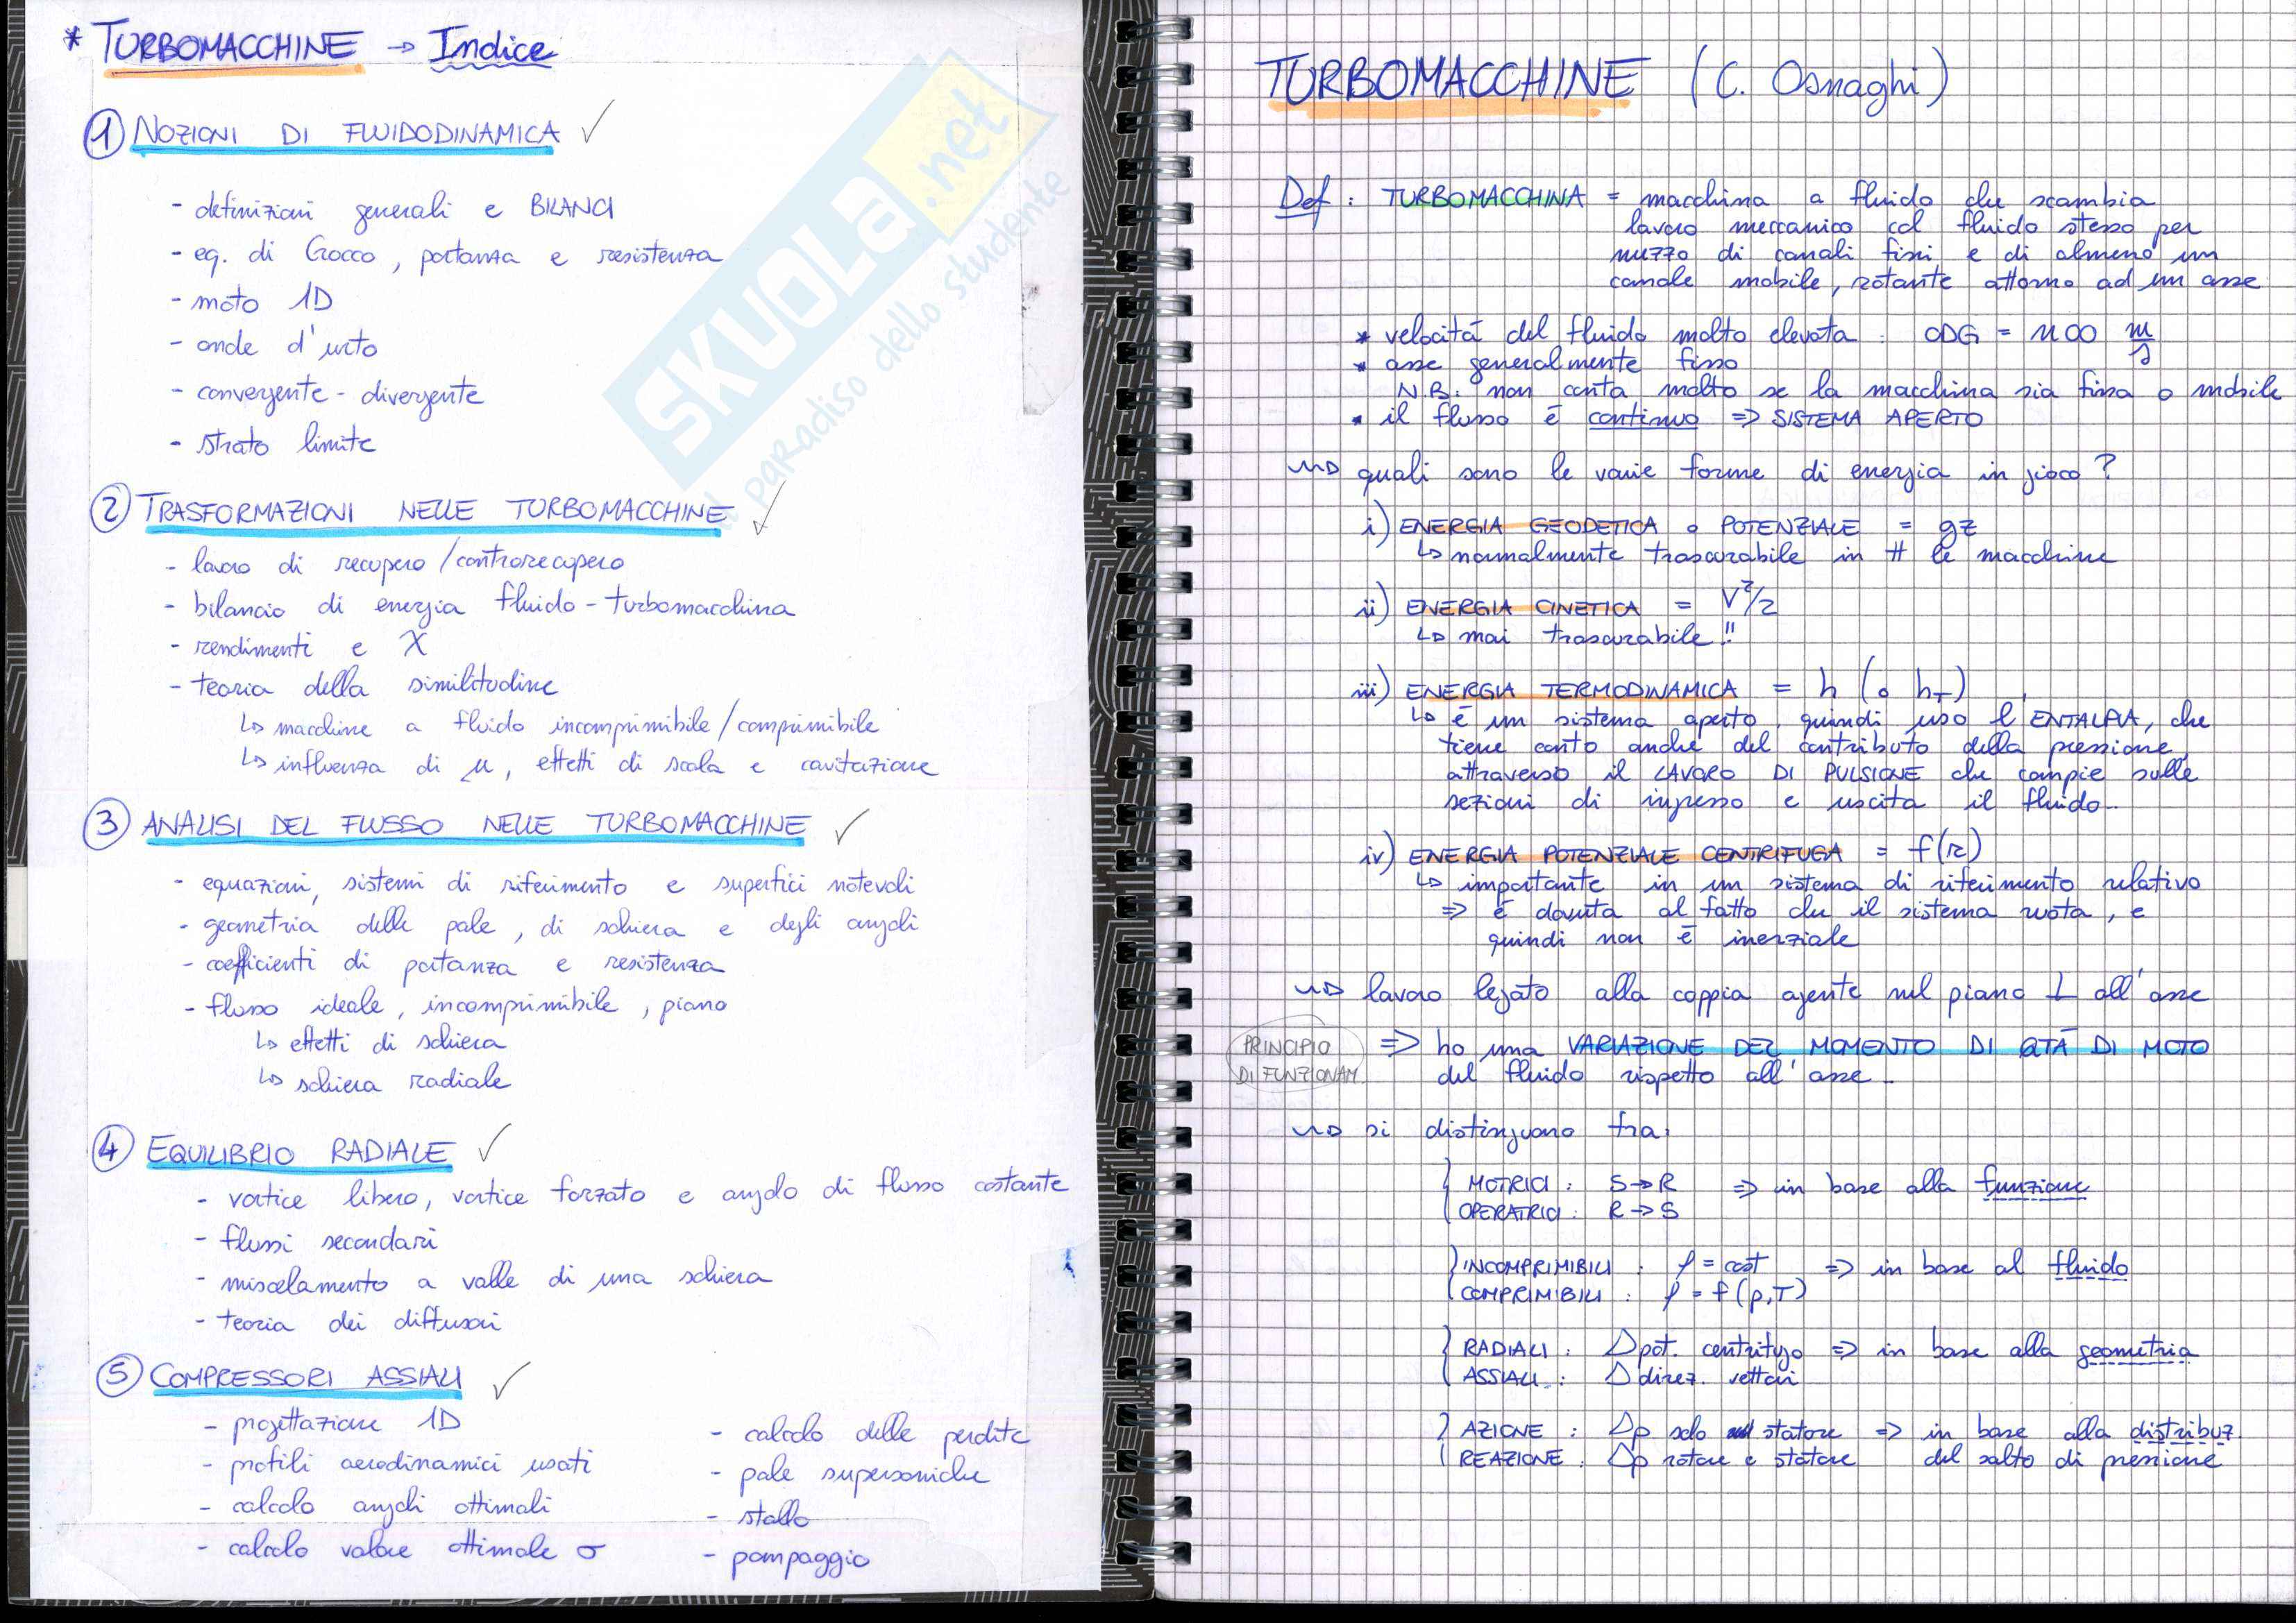 * TURBOMACCHINE → Indice
① NOZIONI DI FLUIDODINAMICA ✓
- definizioni generali e BILANCI
- eq. di Crocco, portanza e resistenza
- moto 1D
- onde d'urto
- convergente - divergente
- strato limite
② TRASFORMAZIONI NELLE TURBOMACCHINE ✓
- lavoro di recupero / controrecupero
- bilancio di energia fluido - turbomacchina
- rendimenti e χ
- teoria della similitudine
↳ macchine a fluido incomprimibile / comprimibile
↳ influenza di μ, effetti di scala e cavitazione
③ ANALISI DEL FLUSSO NELLE TURBOMACCHINE ✓
- equazioni, sistemi di riferimento e superfici notevoli
- geometria delle pale, di schiera e degli angoli
- coefficienti di portanza e resistenza
- flusso ideale, incomprimibile, piano
↳ effetti di schiera
↳ schiera radiale
④ EQUILIBRIO RADIALE ✓
- vortice libero, vortice forzato e angolo di flusso costante
- flussi secondari
- miscelamento a valle di una schiera
- teoria dei diffusori
⑤ COMPRESSORI ASSIALI ✓
- progettazione 1D
- profili aerodinamici usati
- calcolo angoli ottimali
- calcolo valore ottimale σ
- calcolo delle perdite
- pale supersoniche
- stallo
- pompaggio
SKUOLA.net
il paradiso dello studente
TURBOMACCHINE (C. Osnaghi)
Def: TURBOMACCHINA = macchina a fluido che scambia
lavoro meccanico col fluido stesso per
mezzo di canali fissi e di almeno un
canale mobile, rotante attorno ad un asse
* velocità del fluido molto elevata: ODG = 100 m/s
* asse generalmente fisso
N.B.: non conta molto se la macchina sia fissa o mobile
* il flusso è continuo ⇒ SISTEMA APERTO
⇝ quali sono le varie forme di energia in gioco?
i) ENERGIA GEODETICA o POTENZIALE = gz
↳ normalmente trascurabile in tt le macchine
ii) ENERGIA CINETICA = V²/2
↳ mai trascurabile!!
iii) ENERGIA TERMODINAMICA = h (o h_T)
↳ è un sistema aperto, quindi uso l'ENTALPIA, che
tiene conto anche del contributo della pressione,
attraverso il LAVORO DI PULSIONE che compie sulle
sezioni di ingresso e uscita il fluido.
iv) ENERGIA POTENZIALE CENTRIFUGA = f(r)
↳ importante in un sistema di riferimento relativo
⇒ è dovuta al fatto che il sistema ruota, e
quindi non è inerziale
⇝ lavoro legato alla coppia agente nel piano ⊥ all'asse
PRINCIPIO
DI FUNZIONAM.
⇒ ho una VARIAZIONE DEL MOMENTO DI QTÀ DI MOTO
del fluido rispetto all'asse.
⇝ si distinguono fra:
{ MOTRICI: S→R ⇒ in base alla funzione
OPERATRICI: R→S
{ INCOMPRIMIBILI: ρ = cost ⇒ in base al fluido
COMPRIMIBILI: ρ = f(p,T)
{ RADIALI: Δpot. centrifugo ⇒ in base alla geometria
ASSIALI: Δ direz. vettori
{ AZIONE: Δp solo statore ⇒ in base alla distribuz.
REAZIONE: Δp rotore e statore del salto di pressione